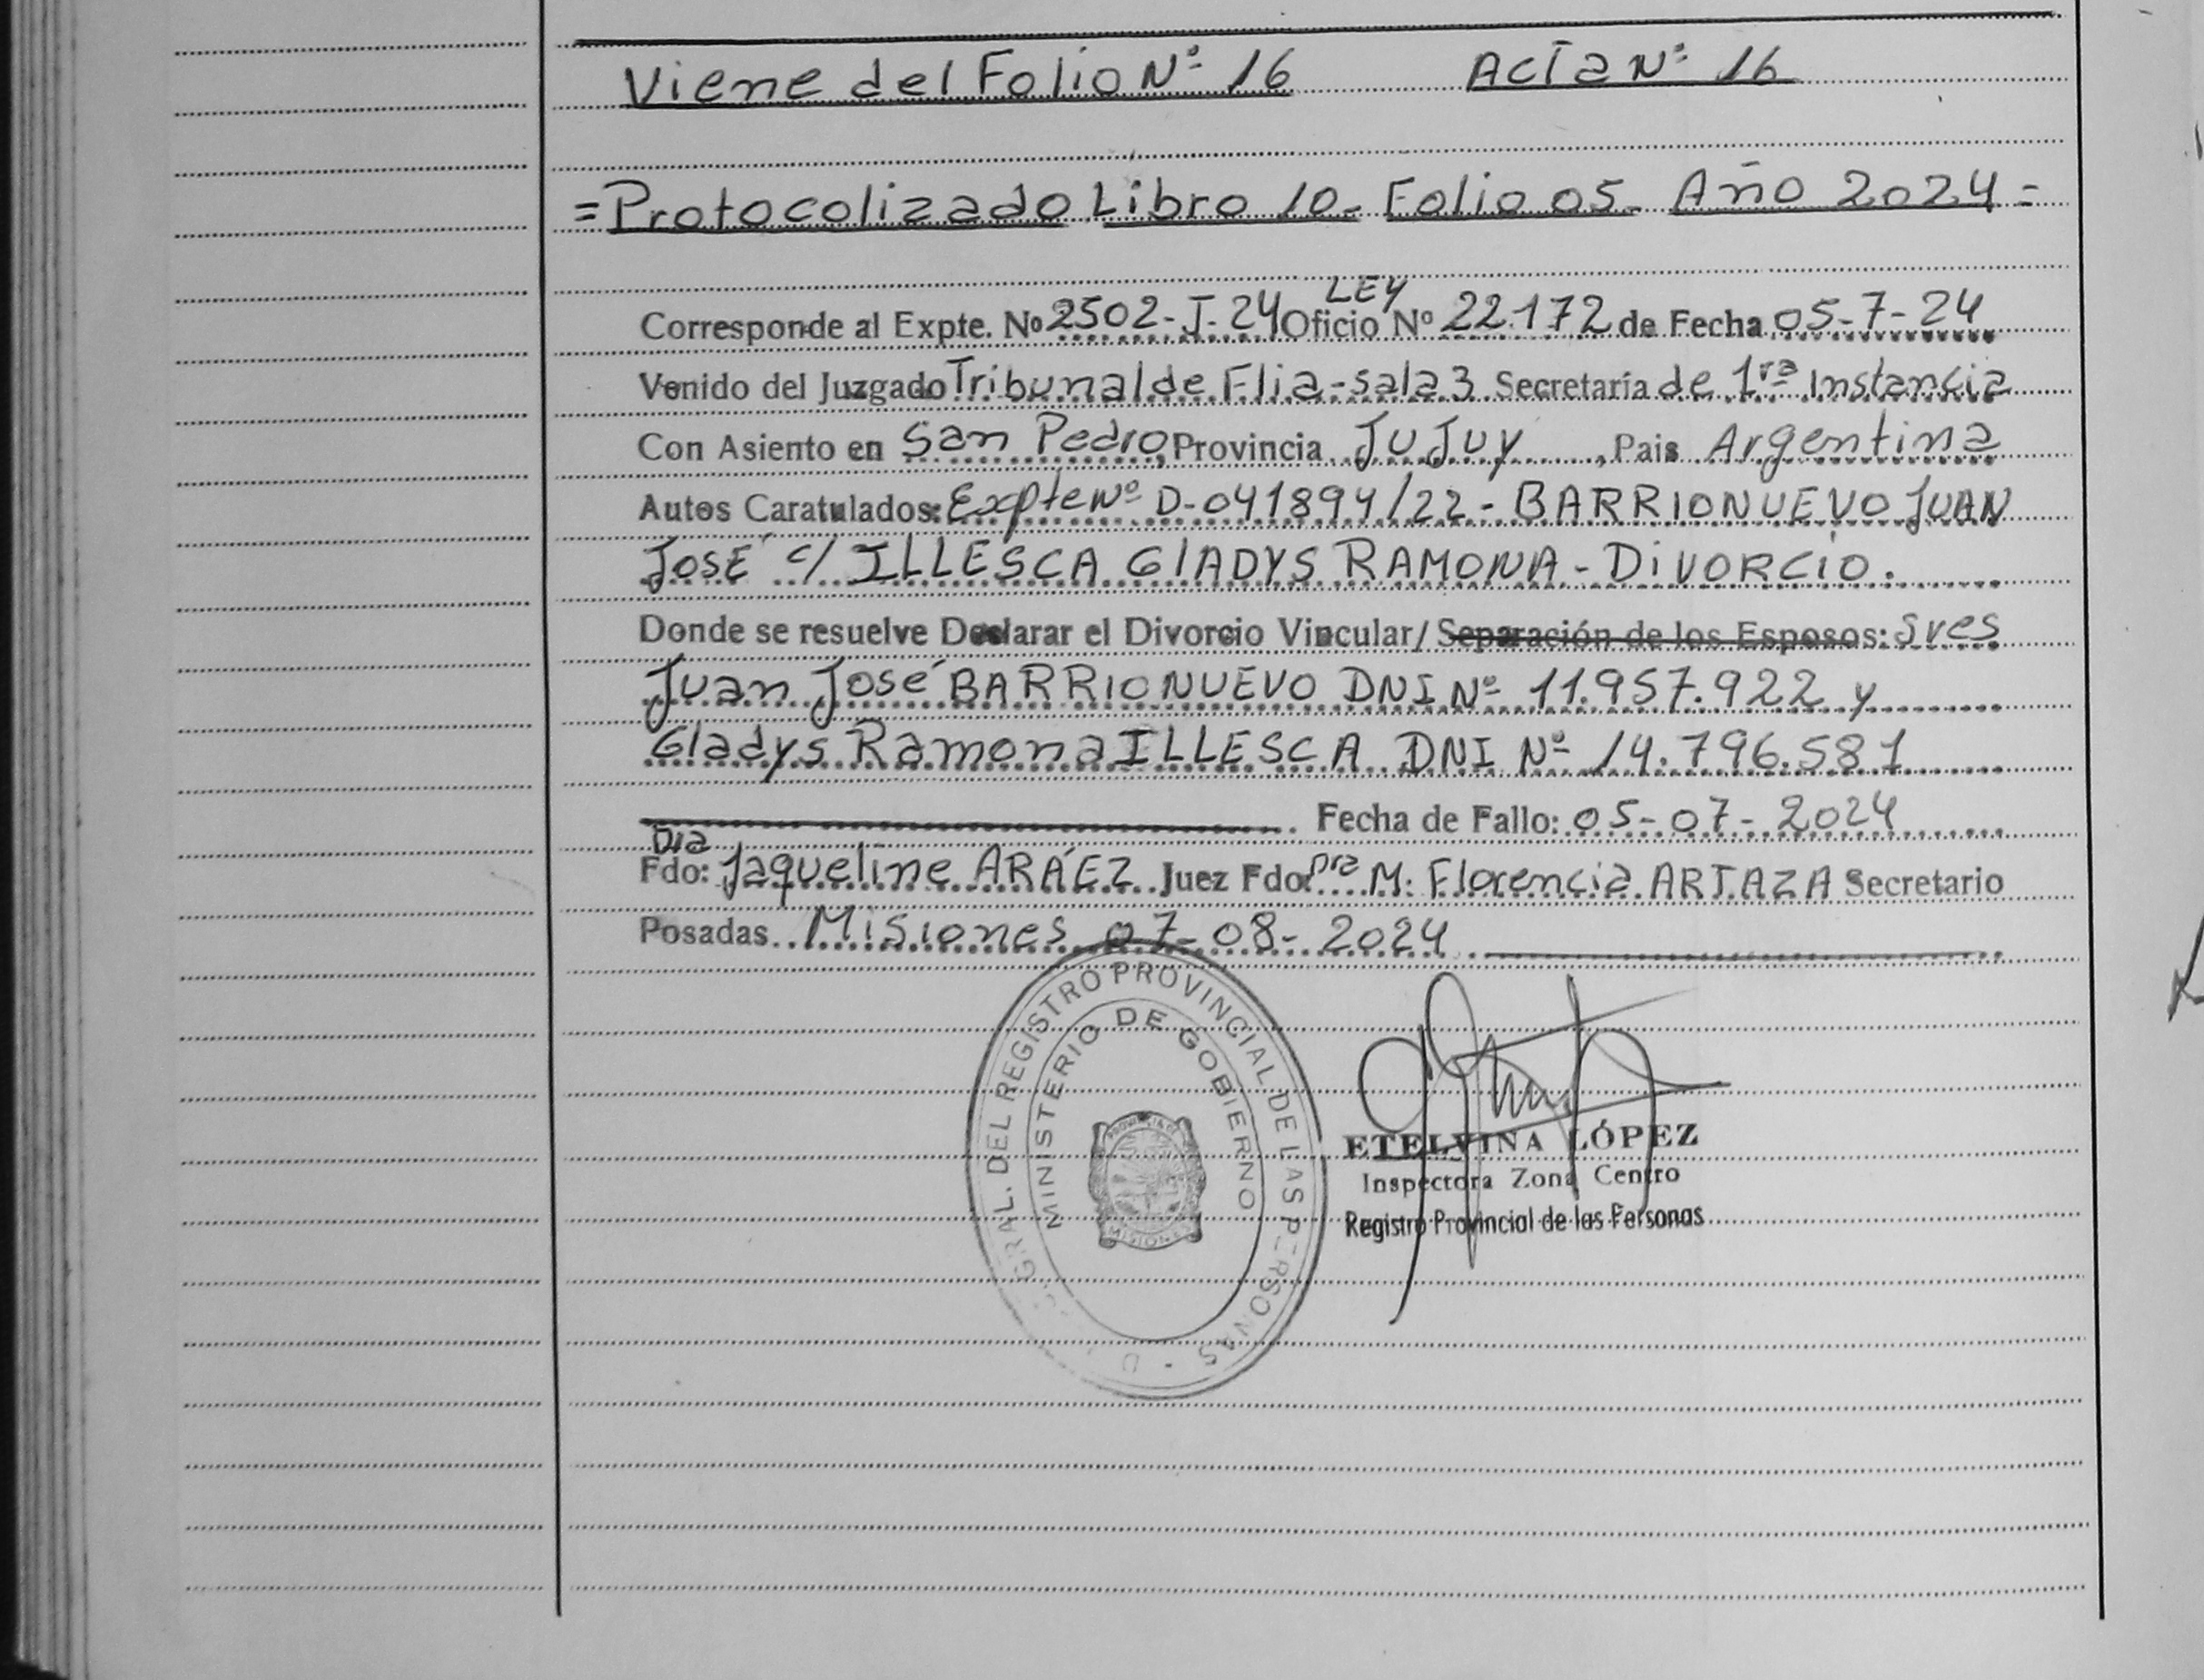 Viene del Folio Nº 16 Acta Nº 16
= Protocolizado Libro 10- Folio 05- Año 2024 =
LEY
Corresponde al Expte. Nº 2502-J-24 Oficio Nº 22.172 de Fecha 05-7-24
Venido del Juzgado Tribunal de Flia-sala 3 Secretaría de 1ra Instancia
Con Asiento en San Pedro, Provincia JUJUY, Pais Argentina
Autos Caratulados: Expte Nº D-041894/22 - BARRIONUEVO JUAN
JOSÉ c/ ILLESCA GLADYS RAMONA - DIVORCIO.
Donde se resuelve Declarar el Divorcio Vincular/ Separación de los Esposos: Sres
Juan José BARRIONUEVO DNI Nº 11.957.922 y
Gladys Ramona ILLESCA DNI Nº 14.796.581
Fecha de Fallo: 05-07-2024
Dra
Fdo: Jaqueline ARÁEZ Juez Fdo: Dra M. Florencia ARTAZA Secretario
Posadas Misiones 07-08-2024
GRAL. DEL REGISTRO PROVINCIAL DE LAS PERSONAS
MINISTERIO DE GOBIERNO
MISIONES
ETELVINA LÓPEZ
Inspectora Zona Centro
Registro Provincial de las Personas